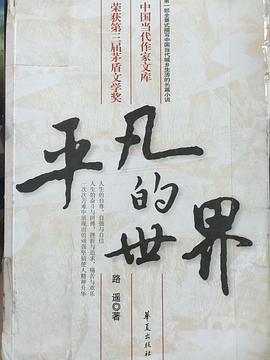 第一部全景式描写中国当代城乡生活的长篇小说
中国当代作家文库
荣获第三届茅盾文学奖
平凡
的
世界
人生的自尊、自强与自信
人生的奋斗与拼搏、挫折与追求、痛苦与欢乐
一次次苦难中展现出的顽强坚韧使人精神升华
路遥◎著
华夏出版社